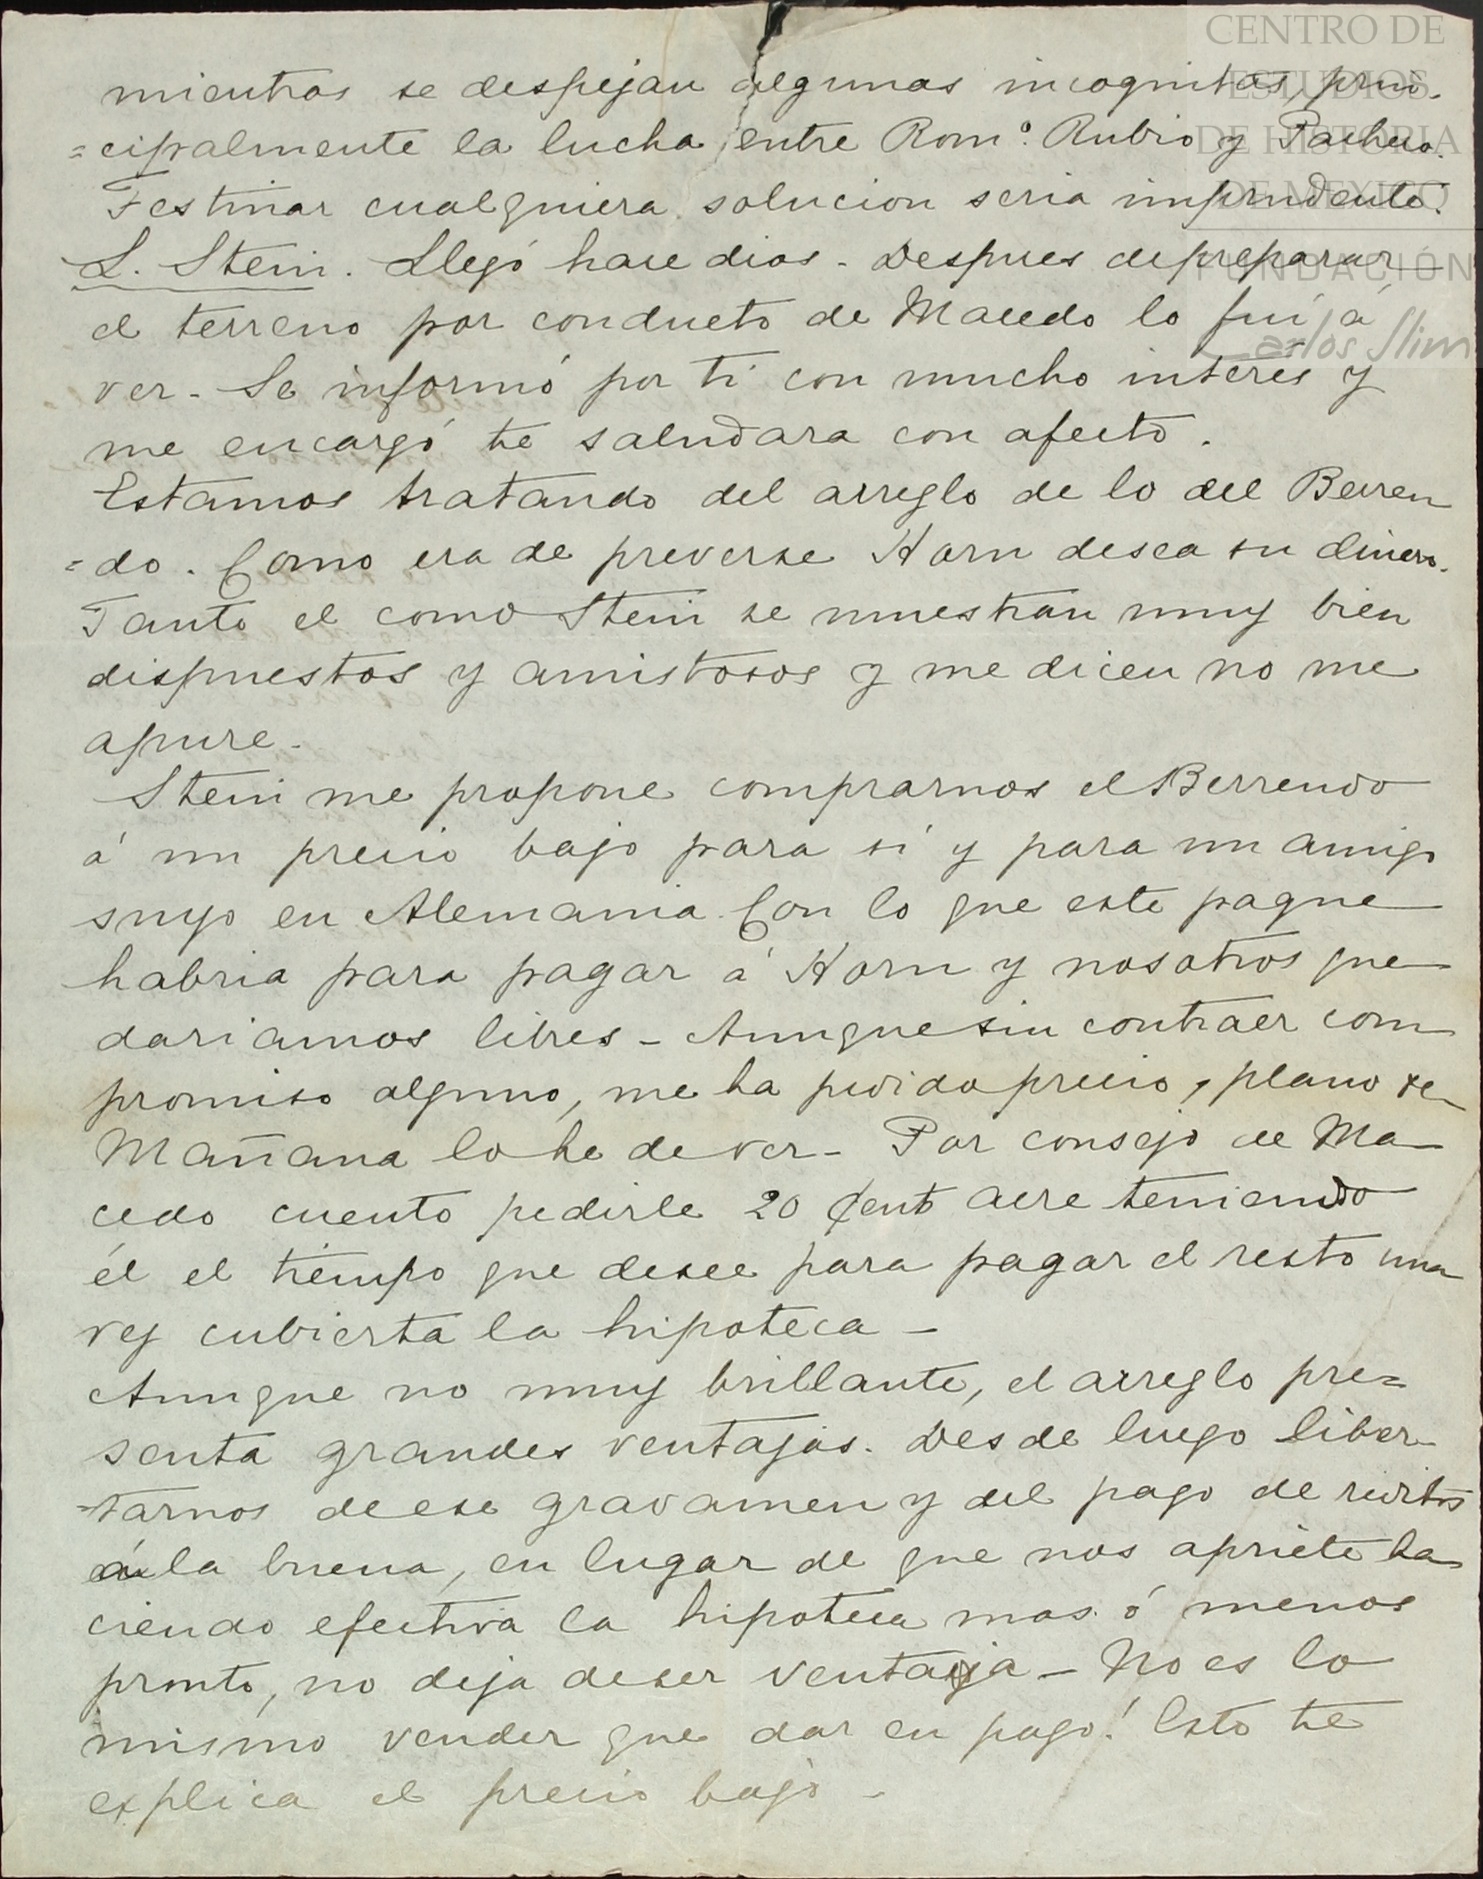 CENTRO DE
ESTUDIOS
DE HISTORIA
DE MEXICO
FUNDACIÓN
Carlos Slim
mientras se despejan algunas incognitas, prin-
=cipalmente la lucha entre Romº. Rubio y Pacheco.
Festinar cualquiera solucion seria imprudente.
L. Stein. Llegó hace dias - Despues de preparar
el terreno por conducto de Macedo lo fui á
ver - Se informó por ti con mucho interés y
me encargó te saludara con afecto.
Estamos tratando del arreglo de lo del Berren
=do. Como era de preverse Horn desea su dinero.
Tanto el como Stein se muestran muy bien
dispuestos y amistosos y me dicen no me
apure -
Stein me propone comprarnos el Berrendo
á un precio bajo para sí y para un amigo
suyo en Alemania. Con lo que este pague
habria para pagar á Horn y nosotros que
dariamos libres - Aunque sin contraer com
promiso alguno, me ha pedido precio, plano
Mañana lo he de ver - Por consejo de Ma
cedo cuento pedirle 20 cent acre teniendo
él el tiempo que desee para pagar el resto una
vez cubierta la hipoteca -
Aunque no muy brillante, el arreglo pre=
senta grandes ventajas. Desde luego liber
=tarnos de ese gravamen y del pago de reditos
á la buena, en lugar de que nos apriete ha
ciendo efectiva la hipoteca mas ó menos
pronto, no deja de ser ventaja - No es lo
mismo vender que dar en pago! Esto te
explica el precio bajo -